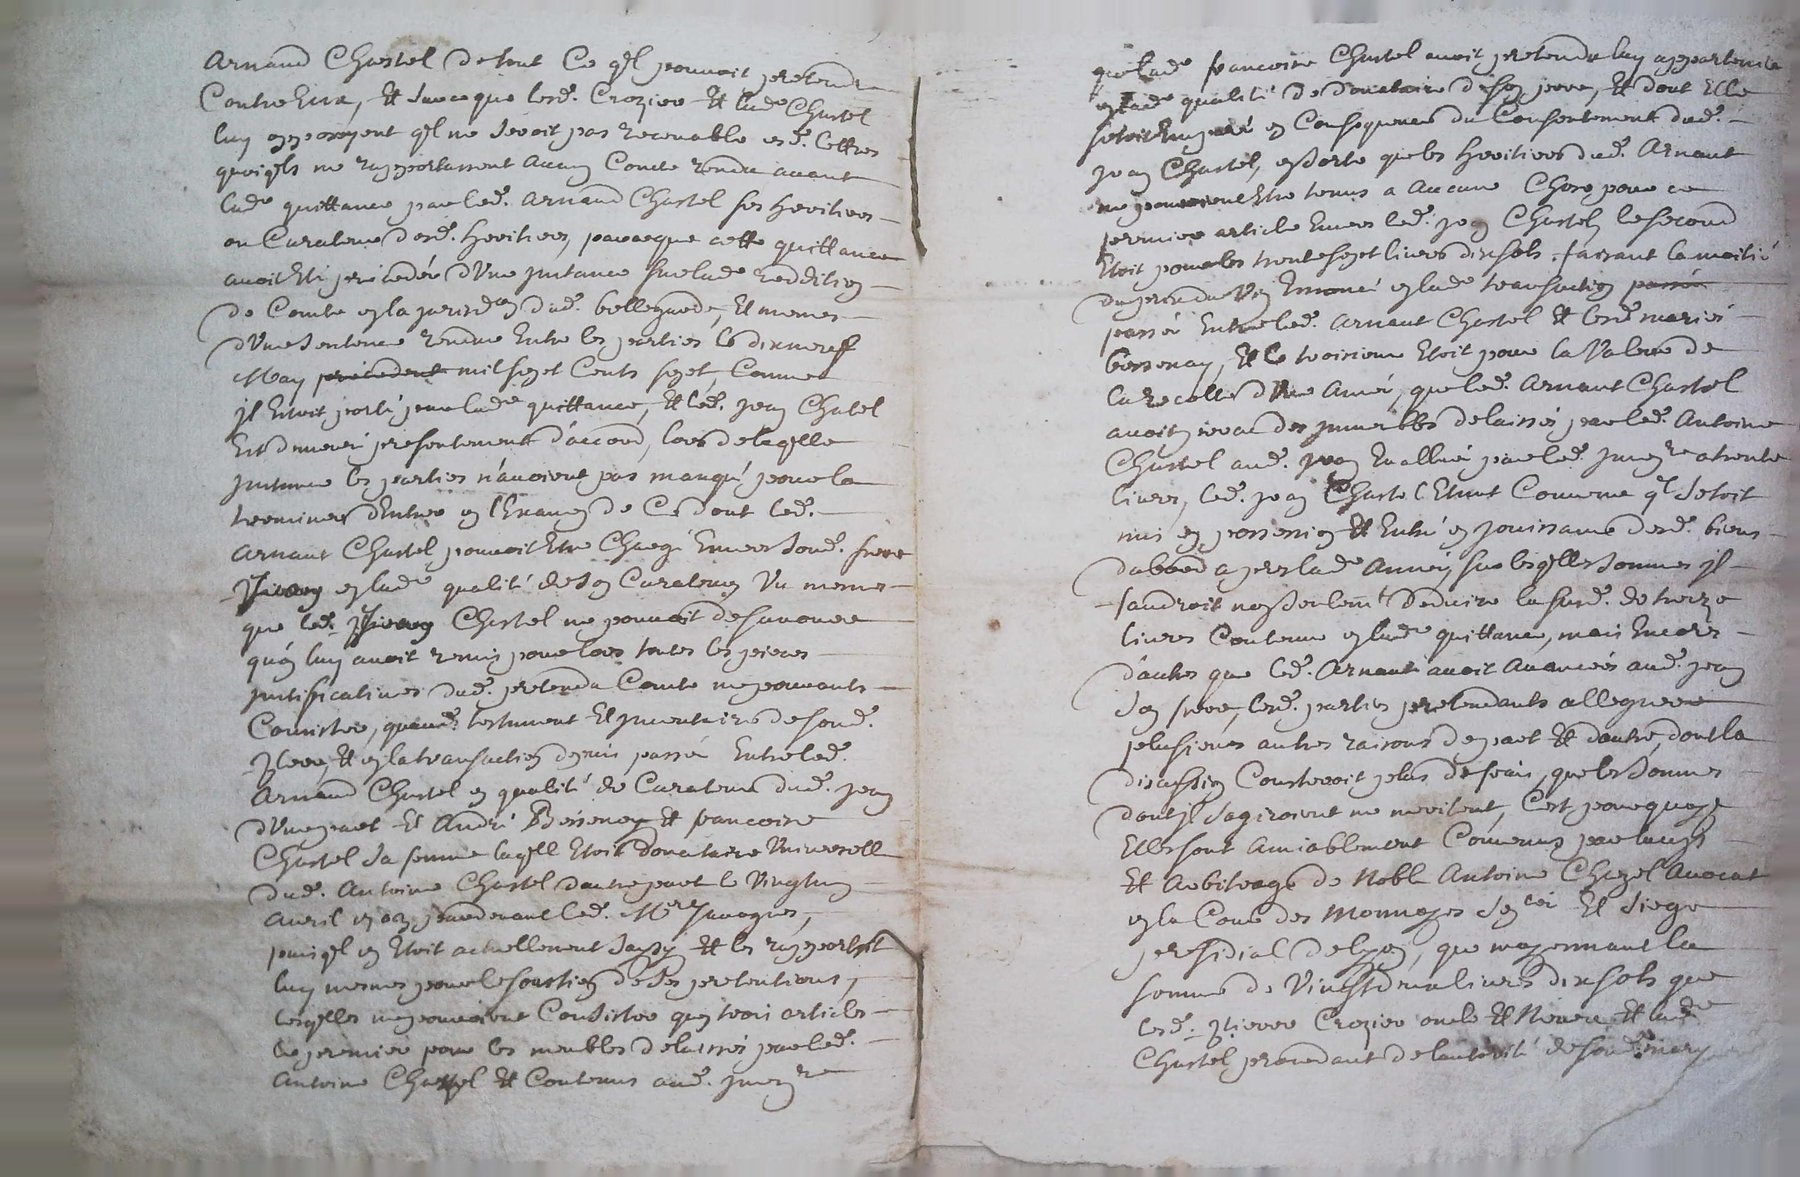 Arnaud Chastel de tout Ce ql pouvoit pretendre
Contre Eux, Et Jurceque lesd. Crozier Et lade Chastel
luy opposoyent ql ne seroit pas recevable esd. lettres
quoiqls ne rapportassent aucun Comte rendu avant
lade quittance par led. Arnaud Chastel ses heritiers
ou Curateur desd. heritiers, parceque cette quittance
avoit Eté precedée d'Une Instance sur lade reddition
de Comte en la jurisdon dud. bellegarde, Et memes
d'Une Sentence rendue Entre les parties le dixneuf
May precedent mil sept Cents sept, Comme
Il Etoit porté par lade quittance, Et led. Jean Chatel
Est demeuré presentement d'accord, lors de laqlle
Instance les parties n'avoient pas manqué pour la
terminer d'Entrer en l'Examen de Ce dont led.
Arnaut Chastel pouvoit Etre Chargé Envers Soud. frere
en lade qualité de Son Curateur Vu memes
que led. Chastel ne pouvoit desavouer
qu'on luy avoit remis pour lors toutes les pieces
Justificatives dud. pretendu Comte ne pouvants
Consister, quaud. testament Et Inventaire de soud.
Pere, Et en la transaction depuis passée Entre led.
Arnaud Chastel en qualité de Curateur dud. Jean
d'Une part Et André Bessenay Et francoise
Chastel Sa femme laqlle Etoit donataire Universelle
dud. Antoine Chastel d'autre part le Vingt
Avril pardevant led. Mre
puisql en Etoit actuellement Saysy Et les rapportoit
luy memes pour le soustien de Ses pretentions,
lesqlles ne pouvoient Consister qu'en trois articles
le premier pour les meubles delaissés par led.
Antoine Chastel Et Contenus aud. Invre
que lade francoise Chastel avoit pretendu luy appartenir
en lade qualité de donataire de Son pere, Et dont Elle
setoit Emparé en Consequence du Consentement dud.
Jean Chastel, en Sorte que les heritiers dud. Arnaut
ne pouvoient Etre tenus a Aucune Chose pour ce
premier article Envers led. Jean Chastel, le second
Etoit pour les trente sept livres dix sols faisant la moitié
du prix du Vin Enoncé en lade transaction passée
passée Entre led. Arnaut Chastel Et lesd. mariés
bessenay, Et le troisieme Etoit pour la Valeur de
la recolte d'Une Année, que led. Arnaut Chastel
avoit perceue des Immeubles delaissés par led. Antoine
Chastel aud. Jean Evallué par led. Invre a trente
livres, led. Jean Chastel Etant Comme ql setoit
mis en possession Et Entré en Jouissance desd. biens
d'abord apres lade Année, sur lesqlles Sommes Il
faudroit non Seulemt Deduire la susd. de treize
livres Contenue en lade quittance, mais Encores
d'autres que led. Arnaut avoit Avancées aud. Jean
Son frere, lesd. parties pretendants alleguer
plusieurs autres raisons de part Et d'autre, dont la
discussion Cousteroit plus de frais, que les Sommes
dont Il Sagiroient ne meritent, C'est pourquoy
Elles sont Amiablement Convenus par l'avis
Et Arbitrage de Noble Antoine Chazel Avocat
en la Cour des Monnoyes Senlcée Et Siege
presidial de Lyon, que moyennant la
somme de Vingt deux livres dix sols que
lesd. Pierre Crozier oncle Et Neveu Et lade
Chastel procedant de l'autorité de soud. mary